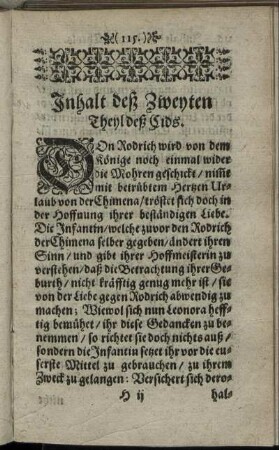 ( 115. )
Inhalt deß Zweyten
Theyl deß Cids.
DOn Rodrich wird von dem
Könige noch einmal wider
die Mohren geschickt / nim̃t
mit betrübtem Hertzen Ur-
laub von der Chimena / tröstet sich doch in
der Hoffnung ihrer beständigen Liebe.
Die Infantin / welche zuvor den Rodrich
der Chimena selber gegeben / ändert ihren
Sinn / und gibt ihrer Hoffmeisterin zu
verstehen / daß die Betrachtung ihrer Ge-
burth / nicht kräfftig genug mehr ist / sie
von der Liebe gegen Rodrich abwendig zu
machen; Wiewol sich nun Leonora heff-
tig bemühet / ihr diese Gedancken zu be-
nemmen / so richtet sie doch nichts auß /
sondern die Infantin setzt ihr vor die eu-
serste Mittel zu gebrauchen / zu ihrem
Zweck zu gelangen: Versichert sich dero-
H ij
hal-